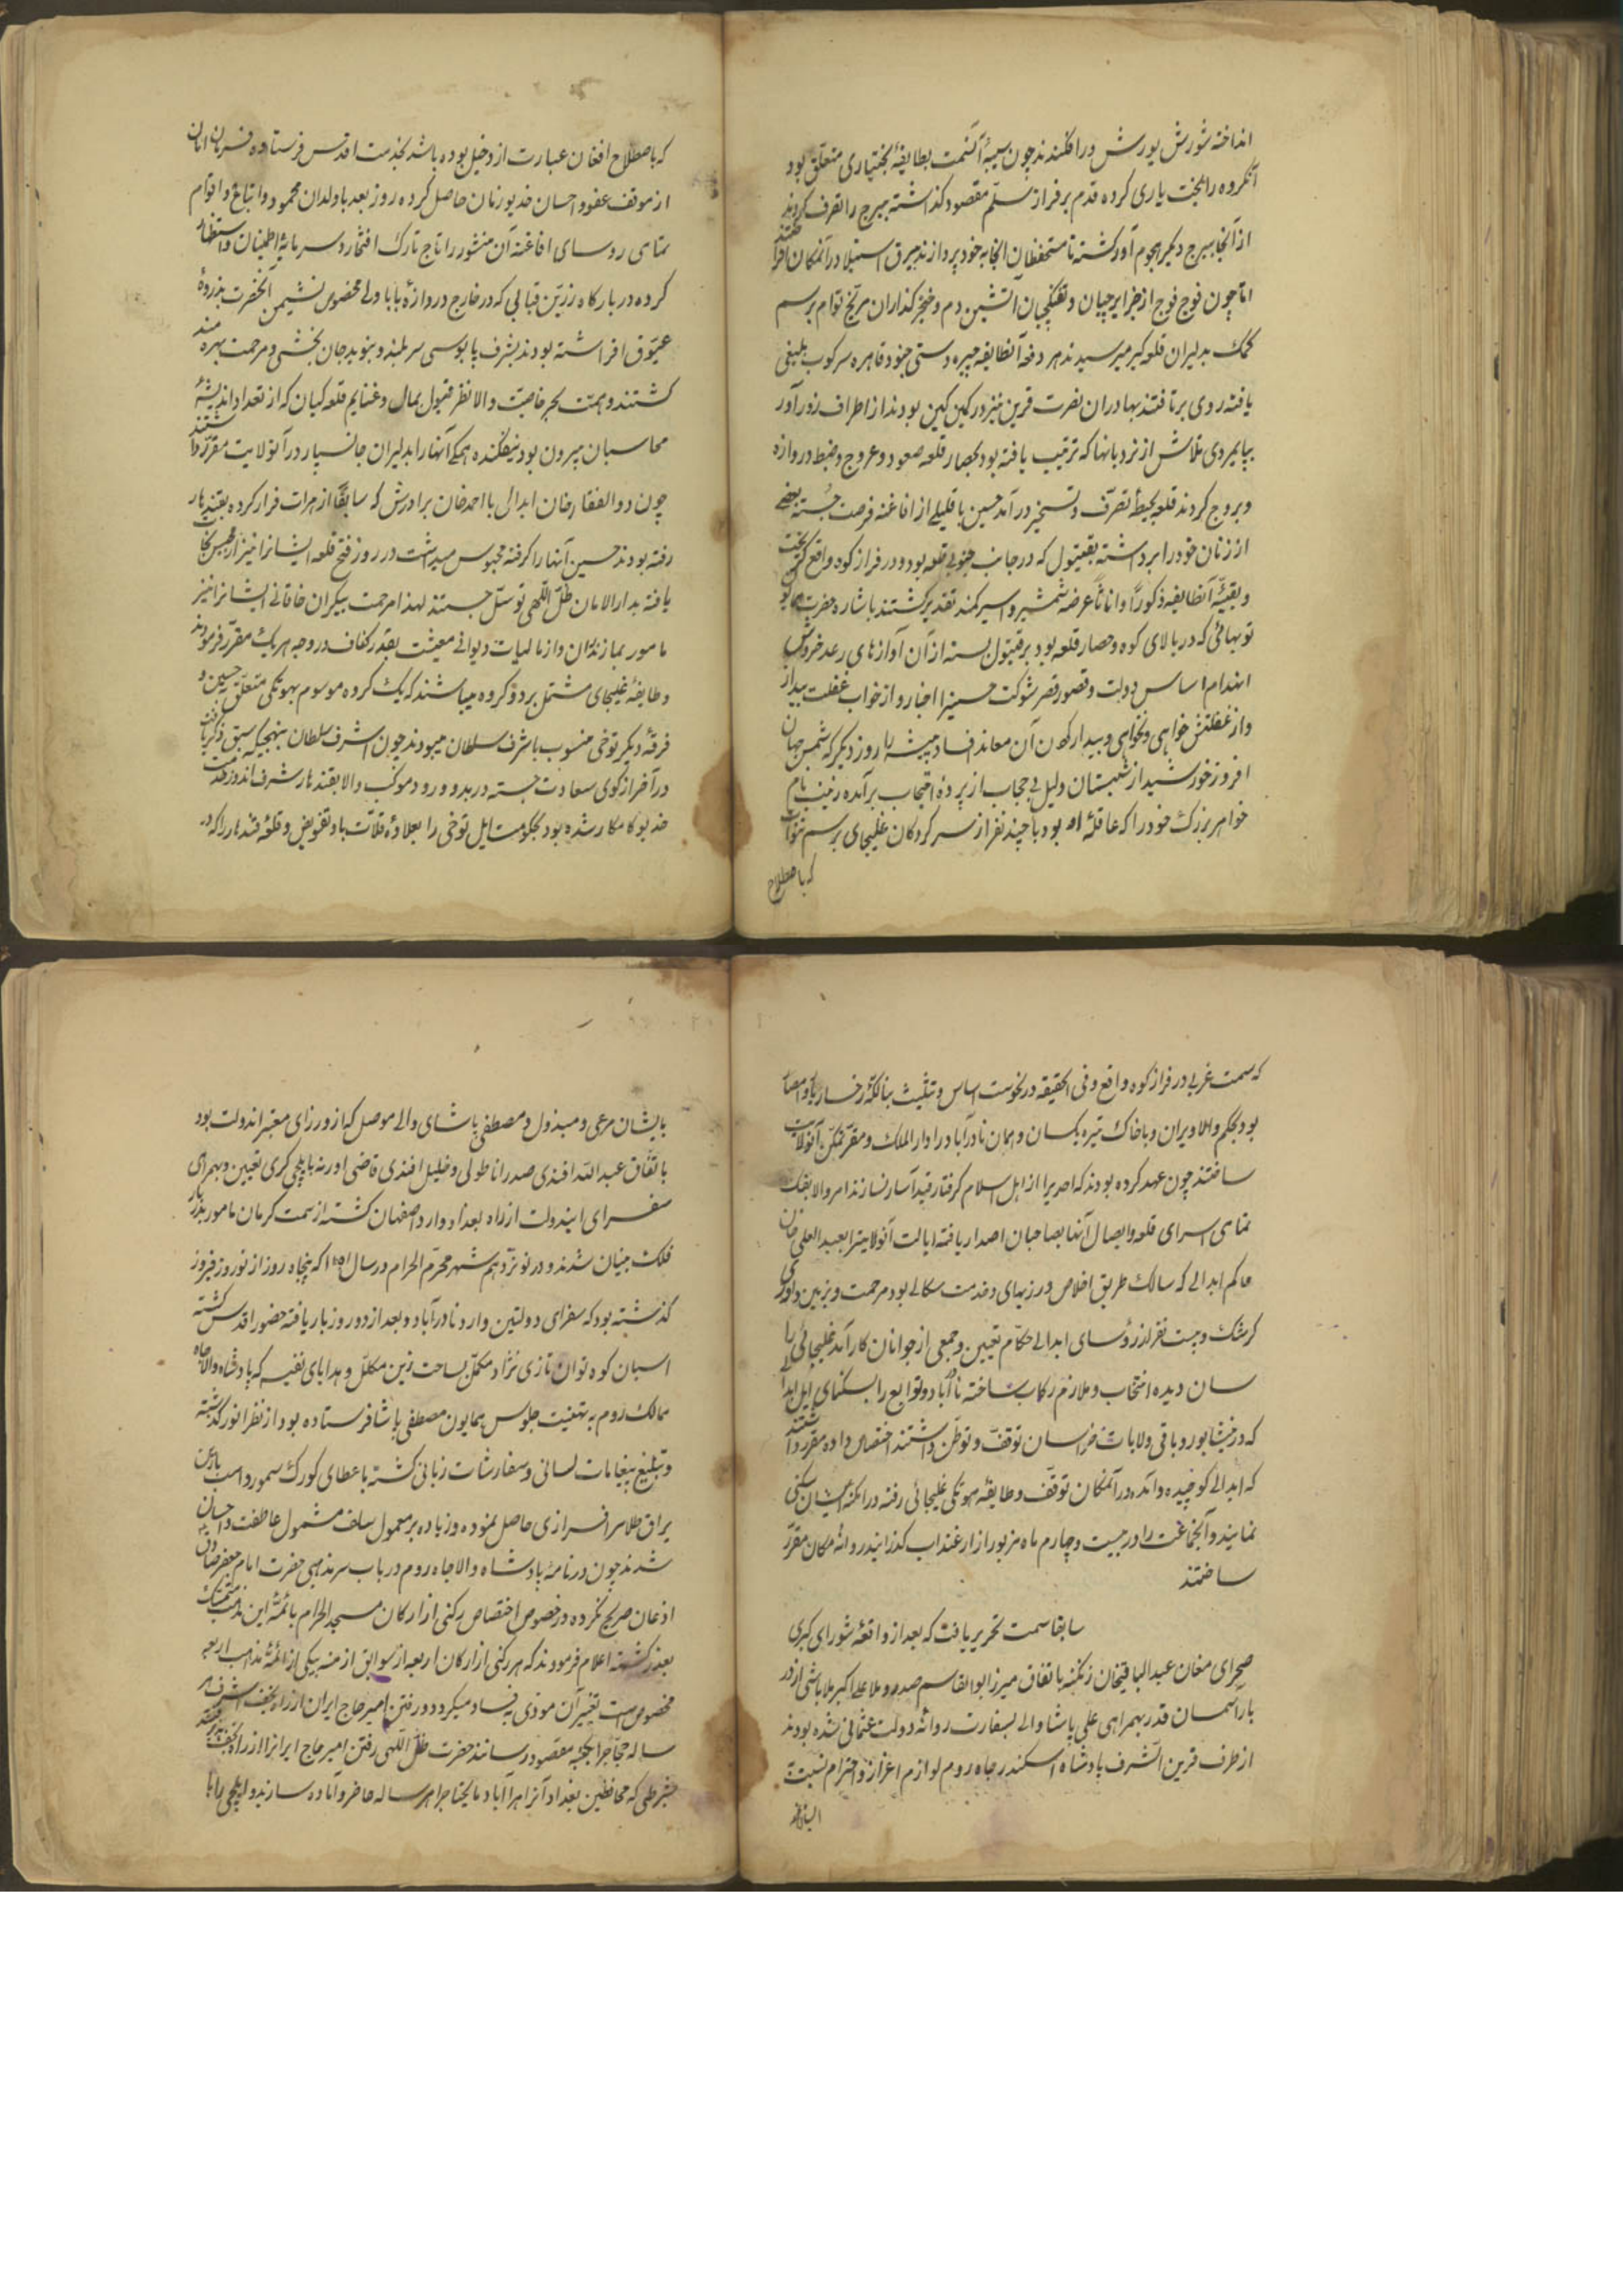 انداخته شورش یورش درافکندند چون سیبهٔ آنسمت بطایفهٔ بختیاری متعلق بود
آنگروه را بخت یاری کرده قدم بر فراز سلّم مقصود گذاشته ببرج را تصرف کردند
از آنجا ببرج دیگر هجوم آور گشته تا مستحفظان آنجا بخود پردازند بیرق استیلا در آنمکان افراختند
اما چون فوج فوج از جزایرچیان و تفنگچیان آتشین دم و خنجرگذاران مریخ توام برسم
کمک بدلیران قلعه گیر میرسیدند هر دفعه آنطایفه چیره دستی جنود قاهره سرکوب بلیغی
یافته روی برتافتند بهادران نصرت قرین نیز در کمین کین بودند از اطراف زورآور
بپایمردی تلاش از نردبانها که ترتیب یافته بود بحصار قلعه صعود و عروج و ضبط دروازه
و بروج کردند قلعه بحیطهٔ تصرف و تسخیر درآمد حسین با قلیلی از افاغنه فرصت جسته بعضی
از زنان خود را برداشته بقیتول که در جانب جنوبی قلعه بود و در فراز کوه واقع گریخت
و بقیّهٔ آنطایفه ذکوراً و اناثاً عرضهٔ شمشیر و اسیر کمند تقدیر گشتند باشاره حضرت
توپهائی که در بالای کوه و حصار قلعه بود بر قیتول بسته از آن آوازهای رعد خروش
انهدام اساس دولت و قصور قصر شوکت حسین را اخبار و از خواب غفلت بیدار
و از غفلتش خواهی و نخواهی و بیدار کردن آن معاند فساد پیشه را روز دیگر که شمس جهان
افروز خورشید از شبستان دلیل بی حجاب از پرده احتجاب برآمده زینب نام
خواهر بزرگ خود را که عاقلهٔ او بود با چند نفر از سرکردگان غلیجای برسم نتوات
که باصطلاح
که باصطلاح افغان عبارت از دخیل بوده باشد بخدمت اقدس فرستاده فرمان امان
از موقف عفو و احسان خدیو زمان حاصل کرده روز بعد با ولدان محمود و اتباع و اقوام
تمامی روسای افاغنه آن منشور را تاج تارک افتخار و سرمایهٔ اطمینان و استظهار
کرده در بارگاه زرّین قبابی که در خارج دروازهٔ بابا ولی مخصوص نشیمن آنحضرت بذروهٔ
عیّوق افراشته بودند بشرف پابوسی سربلند و بنوید جان بخشی و مرحمت بهره مند
گشتند و همّت بحر خاصیت والا نظر قبول بمال و غنایم قلعه گیان که از تعداد اندیشهٔ
محاسبان بیرون بود نیفکنده همگی آنها را بدلیران جانسپار در آنولایت مقرر داشتند
چون ذوالفقار خان ابدالی با احمد خان برادرش که سابقاً از هرات فرار کرده بقندهار
رفته بودند حسین آنها را گرفته محبوس میداشت در روز فتح قلعه ایشانرا نیز از محبس نجات
یافته بدارالامان ظلّ اللّهی توسّل جستند لهذا مرحمت بیکران خاقانی ایشانرا نیز
مامور بمازندران و از مالیات دیوانی معیشت بقدر کفاف در وجه هر یک مقرر فرمودند
و طایفهٔ غلیجای مشتمل بر دو گروه میباشند که یک گروه موسوم بهوتکی متعلق به حسین و
فرقهٔ دیگر توخی منسوب باشرف سلطان میبودند چون اشرف سلطان بنهجیکه سبق ذکر یافت
درآخر از کوی سعادت جسته در بدو ورود موکب والا بقندهار شرف اندوز خدمت
خدیو کامکار شده بود بحکومت ایل توخی را بعلاوهٔ قلات باو تفویض و قلعهٔ قندهار را که در
که سمت غربی در فراز کوه واقع و فی الحقیقه در نحوست اساس و تثلیث بنا
بود بحکم والا ویران و با خاک تیره یکسان و همان نادرآباد را دار الملک و مقرّ تمکّن آنولایت
ساختند چون عهد کرده بودند که احدیرا از اهل اسلام گرفتار قید آسار نسازند امر والا بفک
تمامی اسرای قلعه و ایصال آنها بصاحبان اصدار یافته ایالت آنولایترا بعبدالغنی خان
حاکم ابدالی که سالک طریق اخلاص ورزیهای و خدمت سکالی بود مرحمت و بزمین داور
کرشک و بست نفر از رؤسای ابدالی حکّام تعیین و جمعی از جوانان کارآمد غلیجائی را
سان دیده انتخاب و ملازم رکاب ساخته نادرآباد و توابع را بسکنای ایل ابدالی
که در نیشابور و باقی ولایات خراسان توقف و توطّن داشتند اختصاص داده مقرر داشتند
که ابدالی کوچیده و آمده در آنمکان توقف و طایفهٔ هوتکی غلیجائی رفته در امکنهٔ ایشان سکنی
نمایند و آنجماعت را در بیست و چهارم ماه مزبور از ارغنداب گذرانیده روانهٔ مکان مقرر
ساختند
سابقا سمت تحریر یافت که بعد از واقعهٔ شورای کبری
صحرای مغان عبدالباقیخان زنگنه باتفاق میرزا ابوالقاسم صدر و ملا علی اکبر ملاباشی از در
بار آسمان قدر بهمراهی علی پاشا والی بسفارت روانهٔ دولت عثمانی شده بودند
از طرف قرین الشرف پادشاه اسکندر جاه روم لوازم اعزاز و احترام نسبت
بایشان مرعی و مبذول و مصطفی پاشای والی موصل که از وزرای معتبر اندولت بود
باتفاق عبدالله افندی صدر اناطولی و خلیل افندی قاضی اورنه بایلچی گری تعیین و بهمراهی
سفرای ایندولت از راه بغداد وارد اصفهان گشته از سمت کرمان مامور بدربار
فلک بنیان شدند و در نوزدهم شهر محرم الحرام در سال ۱۱۵۱ که پنجاه روز از نوروز فیروز
گذشته بود که سفرای دولتین وارد نادرآباد و بعد از دو روز بار یافته حضور اقدس گشته
اسبان کوه توان تازی نژاد مکمّل بساخت زین مکلل و هدایای نفیسه که پادشاه والاجاه
ممالک روم به تهنیت جلوس همایون مصطفی پاشا فرستاده بود از نظر انور گذشته
و تبلیغ پیغامات لسانی و سفارشات زبانی گشته باعطای کورک سمور و اسب بازین
یراق طلا سرافرازی حاصل نموده و زیاده بر معمول سلف مشمول عاطفت و احسان
شدند چون در نامهٔ پادشاه والاجاه روم در باب سر مذهبی حضرت امام جعفر صادق
اذعان صریح نکرده در خصوص اختصاص رکنی از ارکان مسجد الحرام بائمّهٔ این مذهب متمسّک
بعذر گشته اعلام فرمودند که هر رکنی از ارکان اربعه از سوابق ازمنه بیکی از ائمّهٔ مذاهب اربعه
مخصوص است تغییر آن مودی بفساد میگردد و رفتن امیر حاج ایران از راه نجف اشرف هر
ساله حجّاج را بکعبهٔ مقصود رسانند حضرت ظلّ اللّهی رفتن امیر حاج ایرانرا از راه نجف
بشرطی که محافظین بغداد آنراه را آباد و مایحتاج را هر ساله حاضر و آماده سازند و ایلچی را با